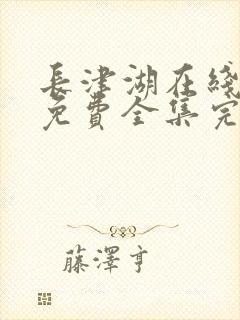 長津湖在綫
免費全集完
藤澤亨